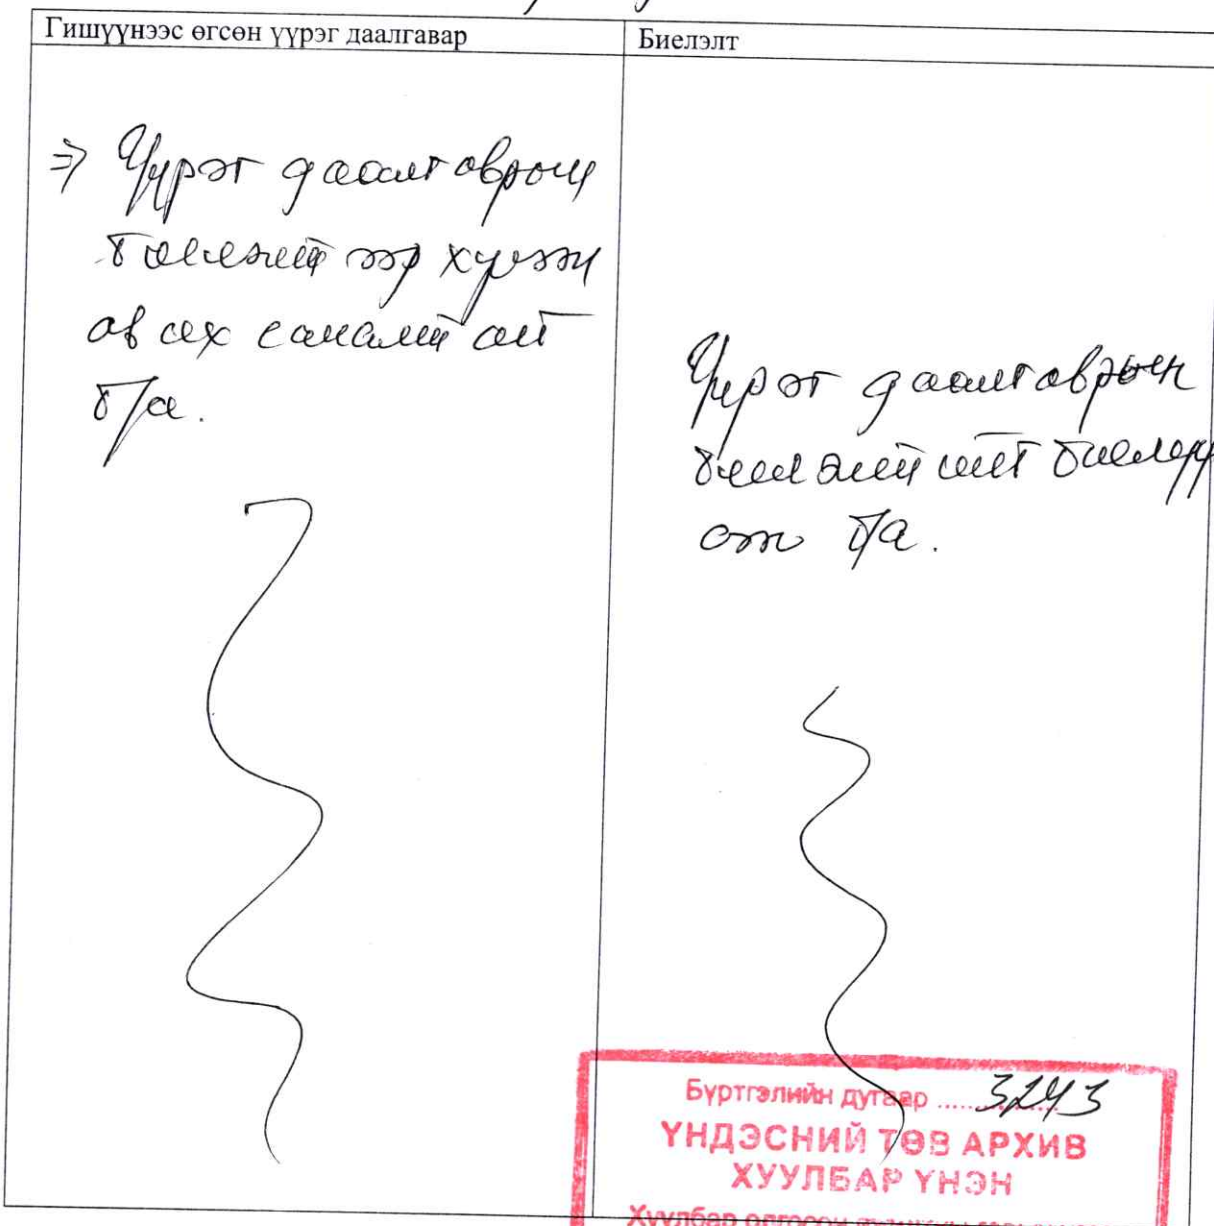 Гишүүнээс өгсөн үүрэг даалгавар
Биелэлт
⇒ Үүрэг даалгаврын
биелэлтээр хүлээн
авах саналтай
б/а.
Үүрэг даалгаврын
биелэлт
б/а.
Бүртгэлийн дугаар ............ 3243
ҮНДЭСНИЙ ТӨВ АРХИВ
ХУУЛБАР ҮНЭН
Хуулбар олгосон